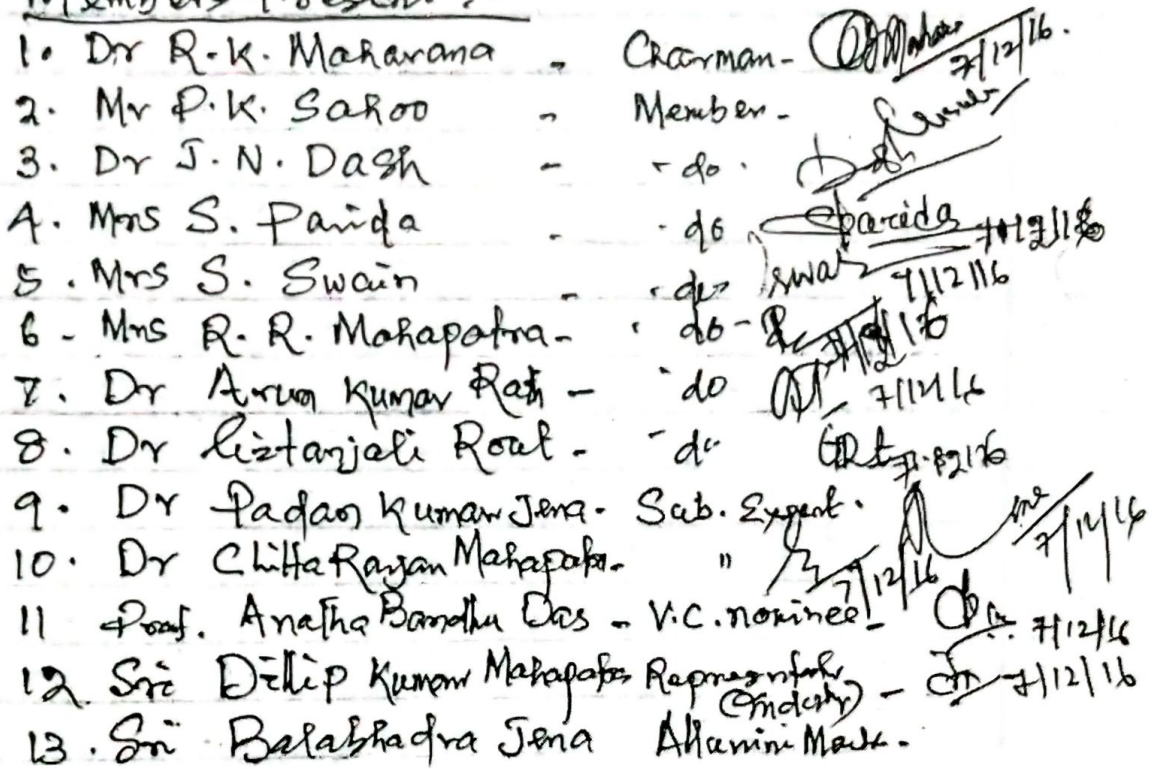 Members Present :
1. Dr R.K. Maharana - Chairman - 7/12/16.
2. Mr P.K. Sahoo - Member -
3. Dr J.N. Dash - - do - Dash
4. Mrs S. Parida - - do Sparida 7/12/16
5. Mrs S. Swain - - do Swain 7/12/16
6 - Mrs R.R. Mahapatra - - do - 7/12/16
7. Dr Arun Kumar Rath - - do 7/12/16
8. Dr Gitanjali Rout - - do GRout 7.12.16
9. Dr Padan Kumar Jena - Sub. Expert. 7/12/16
10. Dr Chitta Ranjan Mahapatra - " 7/12/16
11 Prof. Anatha Bandhu Das - V.C. nominee - 7/12/16
12. Sri Dillip Kumar Mahapatra Representative (Industry) - 7/12/16
13. Sri Balabhadra Jena Alumini Mem.